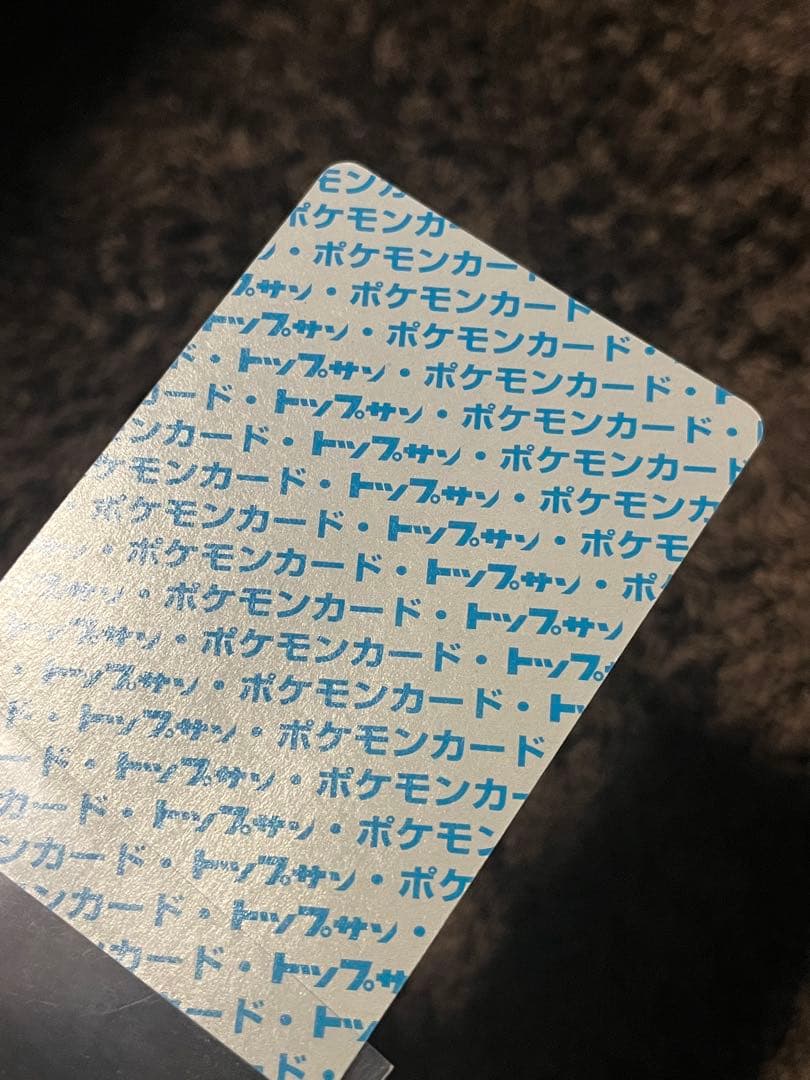 モンカ
ポケモンカー
・ポケモンカード
プサン・ポケモンカード
トップサン・ポケモンカード・
ド・トップサン・ポケモンカード・ト
カード・トップサン・ポケモンカード・
ンカード・トップサン・ポケモンカード
ケモンカード・トップサン・ポケモンカ
ポケモンカード・トップサン・ポケモ
・ポケモンカード・トップサン・ポケ
サン・ポケモンカード・トップサン
トップサン・ポケモンカード・トップサ
トップサン・ポケモンカード・ト
ド・トップサン・ポケモンカード
ード・トップサン・ポケモンカー
カード・トップサン・ポケモン
ンカード・トップサン・ポケ
ンカード・トップサン・
カード・トップサ
ード・トッ
ド・